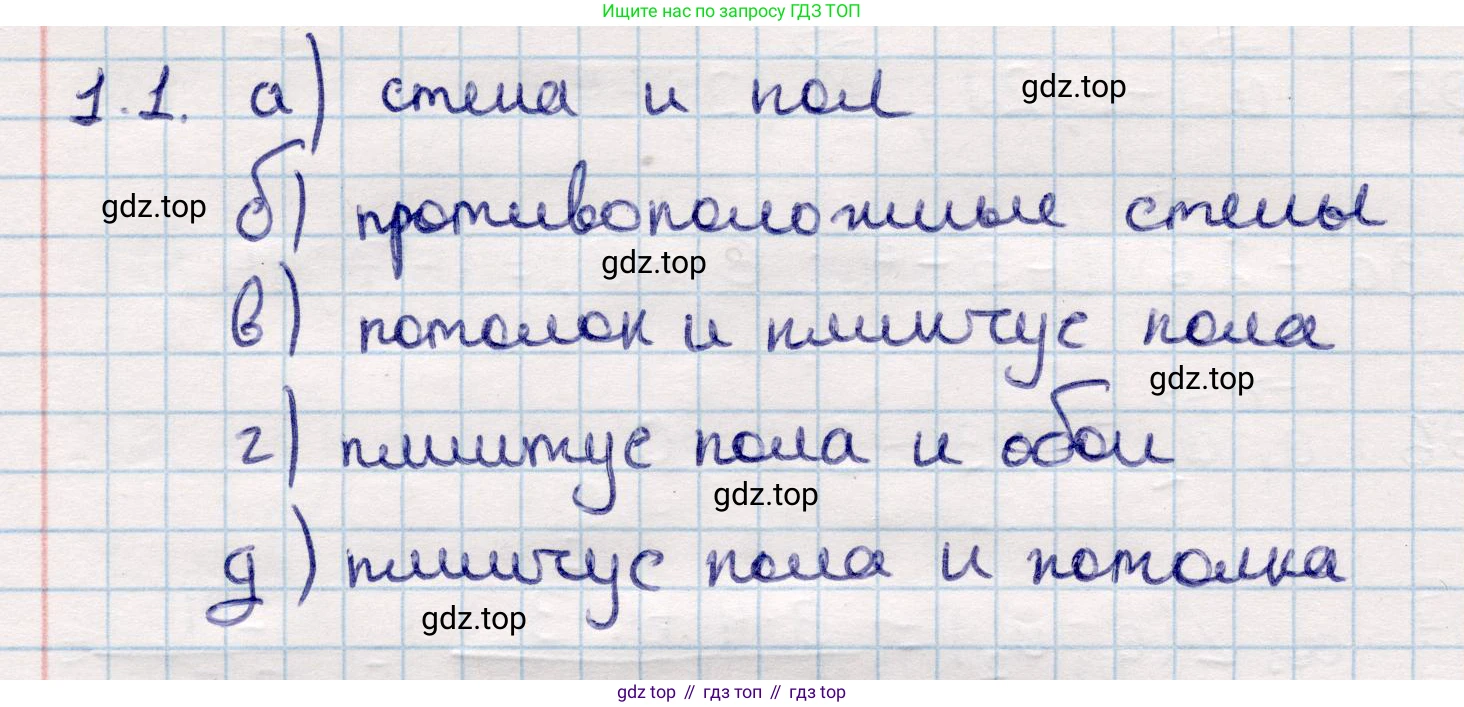 Ищите нас по запросу ГДЗ ТОП
1.1. а) стена и пол
gdz.top
gdz.top
б) противоположные стены
gdz.top
в) потолок и плинтус пола
gdz.top
г) плинтус пола и обои
gdz.top
д) плинтус пола и потолка
gdz.top
gdz top // гдз топ // гдз top